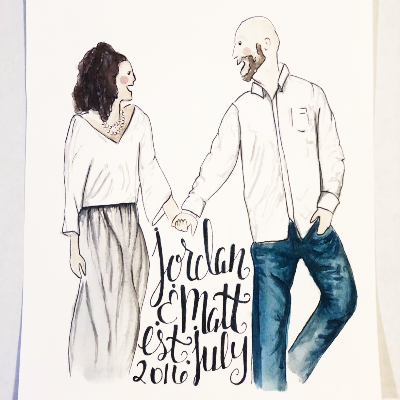 Jordan
& Matt
est. July
2016